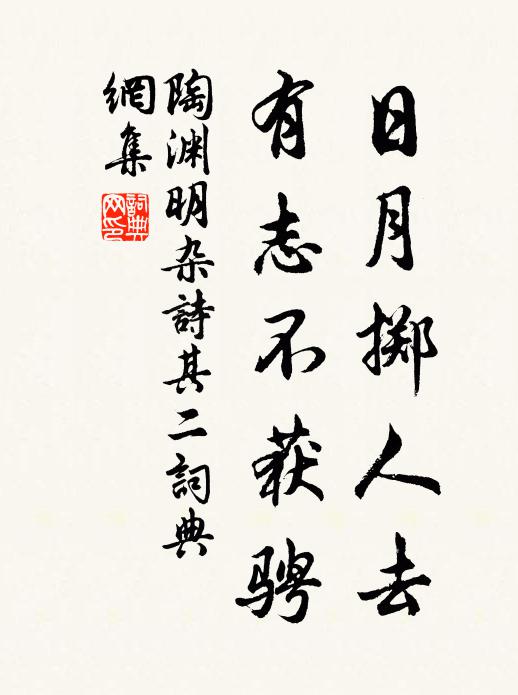 日月掷人去
有志不获骋
陶渊明杂詩其二詞典
網集
詞典
网印